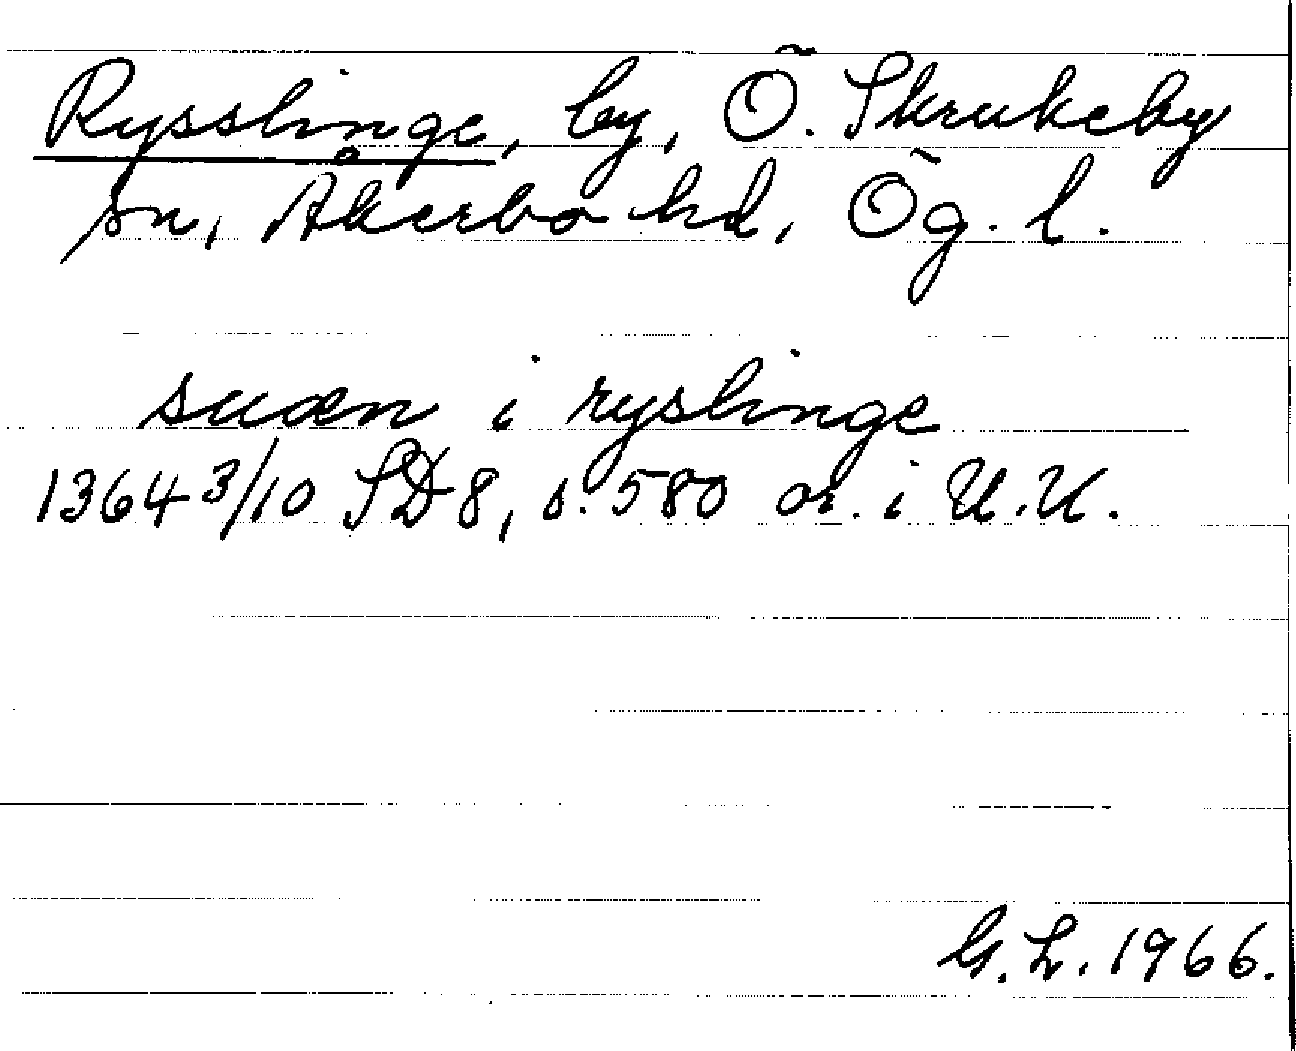 Rysslinge, by, Ö. Skrukeby
sn, Åkerbo hd, Ög. l.
suæn i ryslinge
1364 3/10 SD 8, s. 580 or. i U.U.
G. L. 1966.